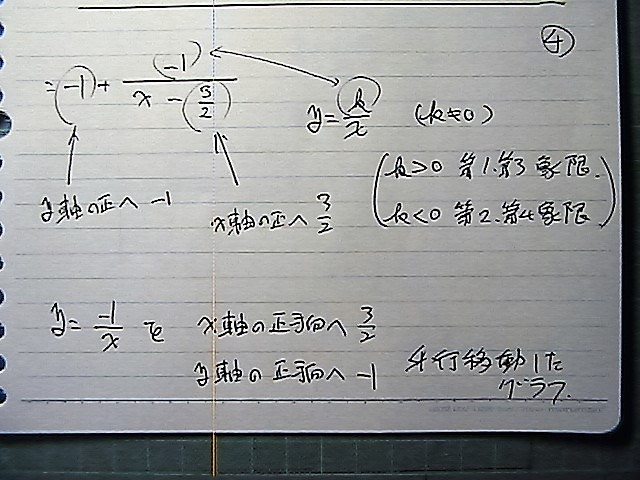 ④
= -1 + (-1)/(x - (3/2))
y = k/x (k≠0)
(k>0 第1.第3象限.
k<0 第2.第4象限)
y軸の正へ -1
x軸の正へ 3/2
y = -1/x を x軸の正方向へ 3/2
y軸の正方向へ -1 平行移動した
グラフ.